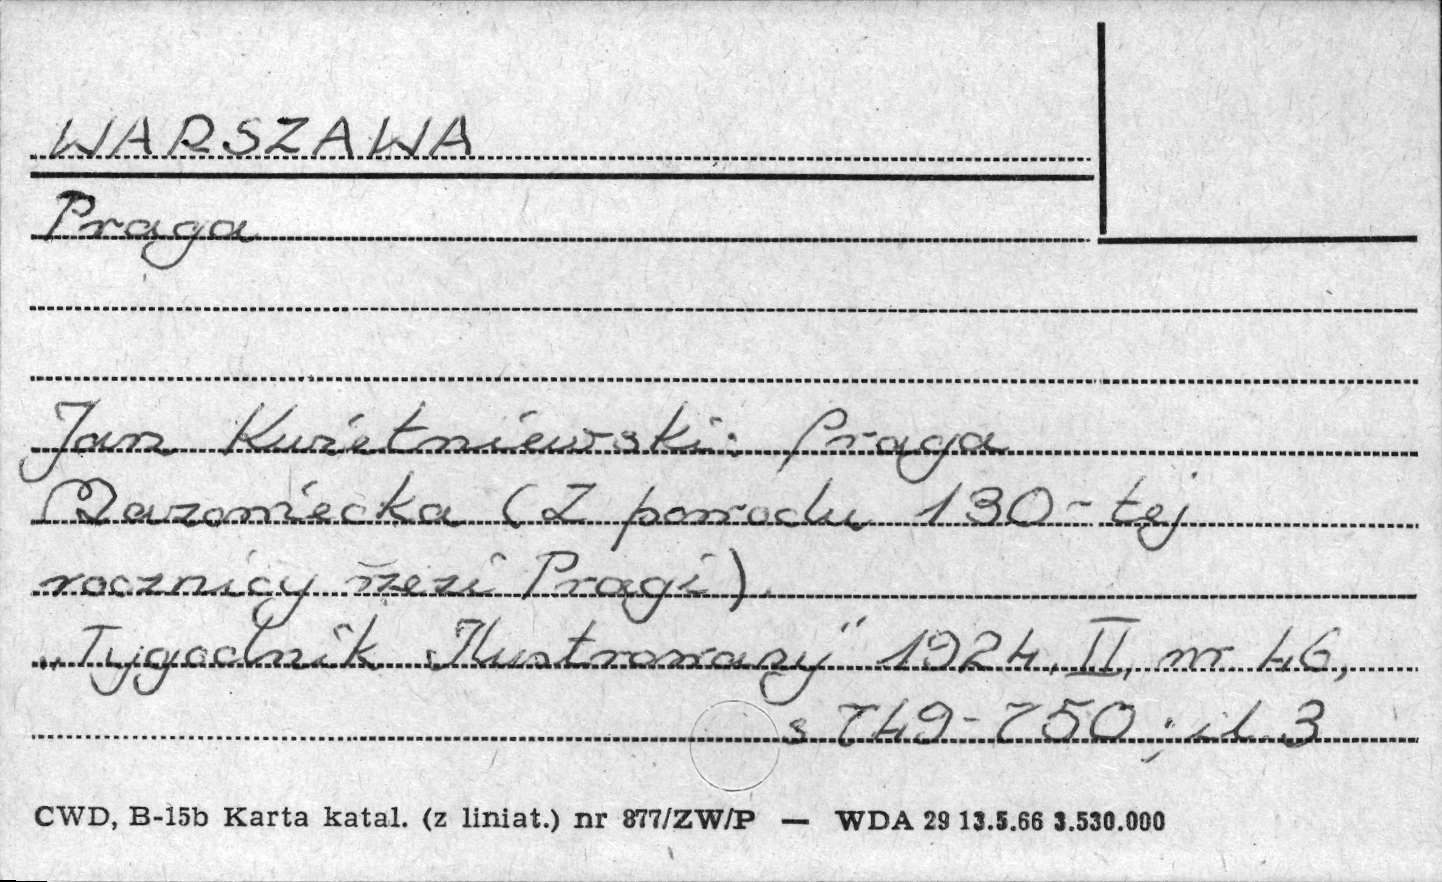 WARSZAWA
Praga
Jan Kwietniewski: Praga
Mazowiecka (Z powodu 130-tej
rocznicy rzezi Pragi).
„Tygodnik Ilustrowany" 1924, II, nr 46,
s 749-750; il. 3
CWD, B-15b Karta katal. (z liniat.) nr 877/ZW/P — WDA 29 13.5.66 3.530.000